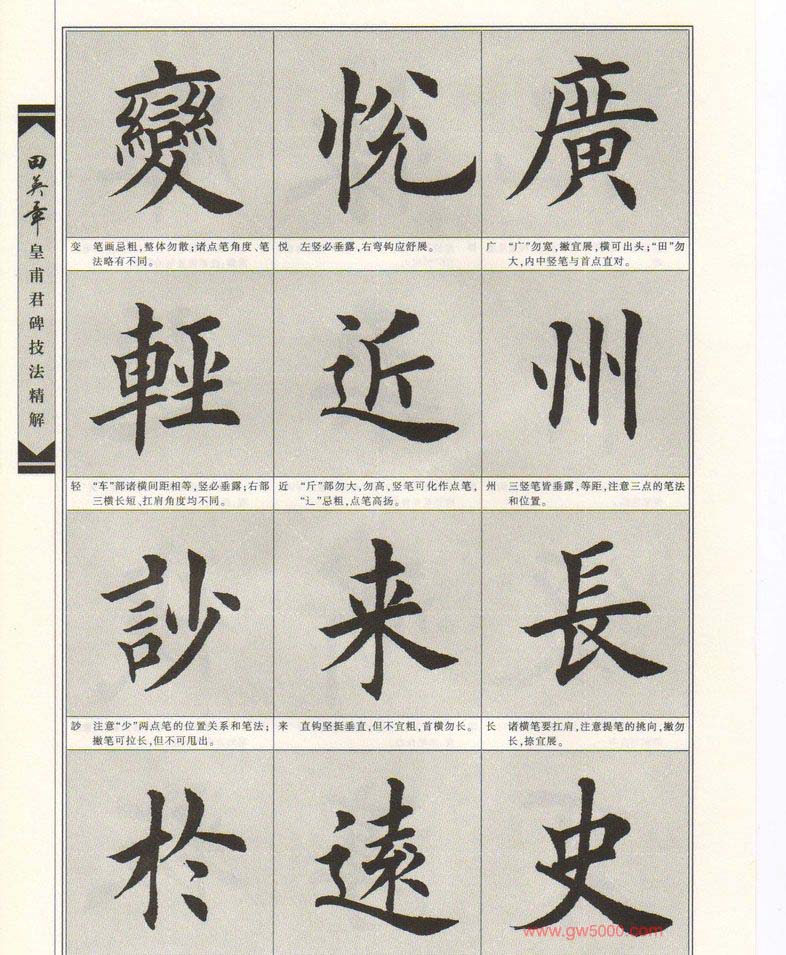 田英章
皇甫君碑技法精解
變 悅 廣
变 笔画忌粗，整体勿散；诸点笔角度、笔
法略有不同。
悦 左竖必垂露，右弯钩应舒展。
广 “广”勿宽，撇宜展，横可出头；“田”勿
大，内中竖笔与首点直对。
輕 近 州
轻 “车”部诸横间距相等，竖必垂露；右部
三横长短、扛肩角度均不同。
近 “斤”部勿大，勿高，竖笔可化作点笔，
“辶”忌粗，点笔高扬。
州 三竖笔皆垂露，等距，注意三点的笔法
和位置。
訬 来 長
訬 注意“少”两点笔的位置关系和笔法；
撇笔可拉长，但不可甩出。
来 直钩坚挺垂直，但不宜粗，首横勿长。
长 诸横笔要扛肩，注意提笔的挑向，撇勿
长，捺宜展。
於 遠 史
www.gw5000.com